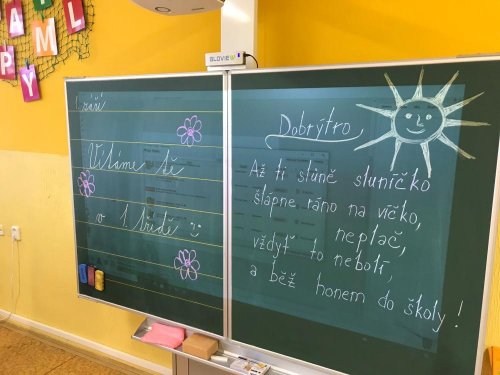 1. září
Vítáme tě
v 1. třídě
GLOVIEW
Dobrýtro
Až ti slůně sluníčko
šlápne ráno na víčko,
neplač,
vždyť to nebolí,
a běž honem do školy!